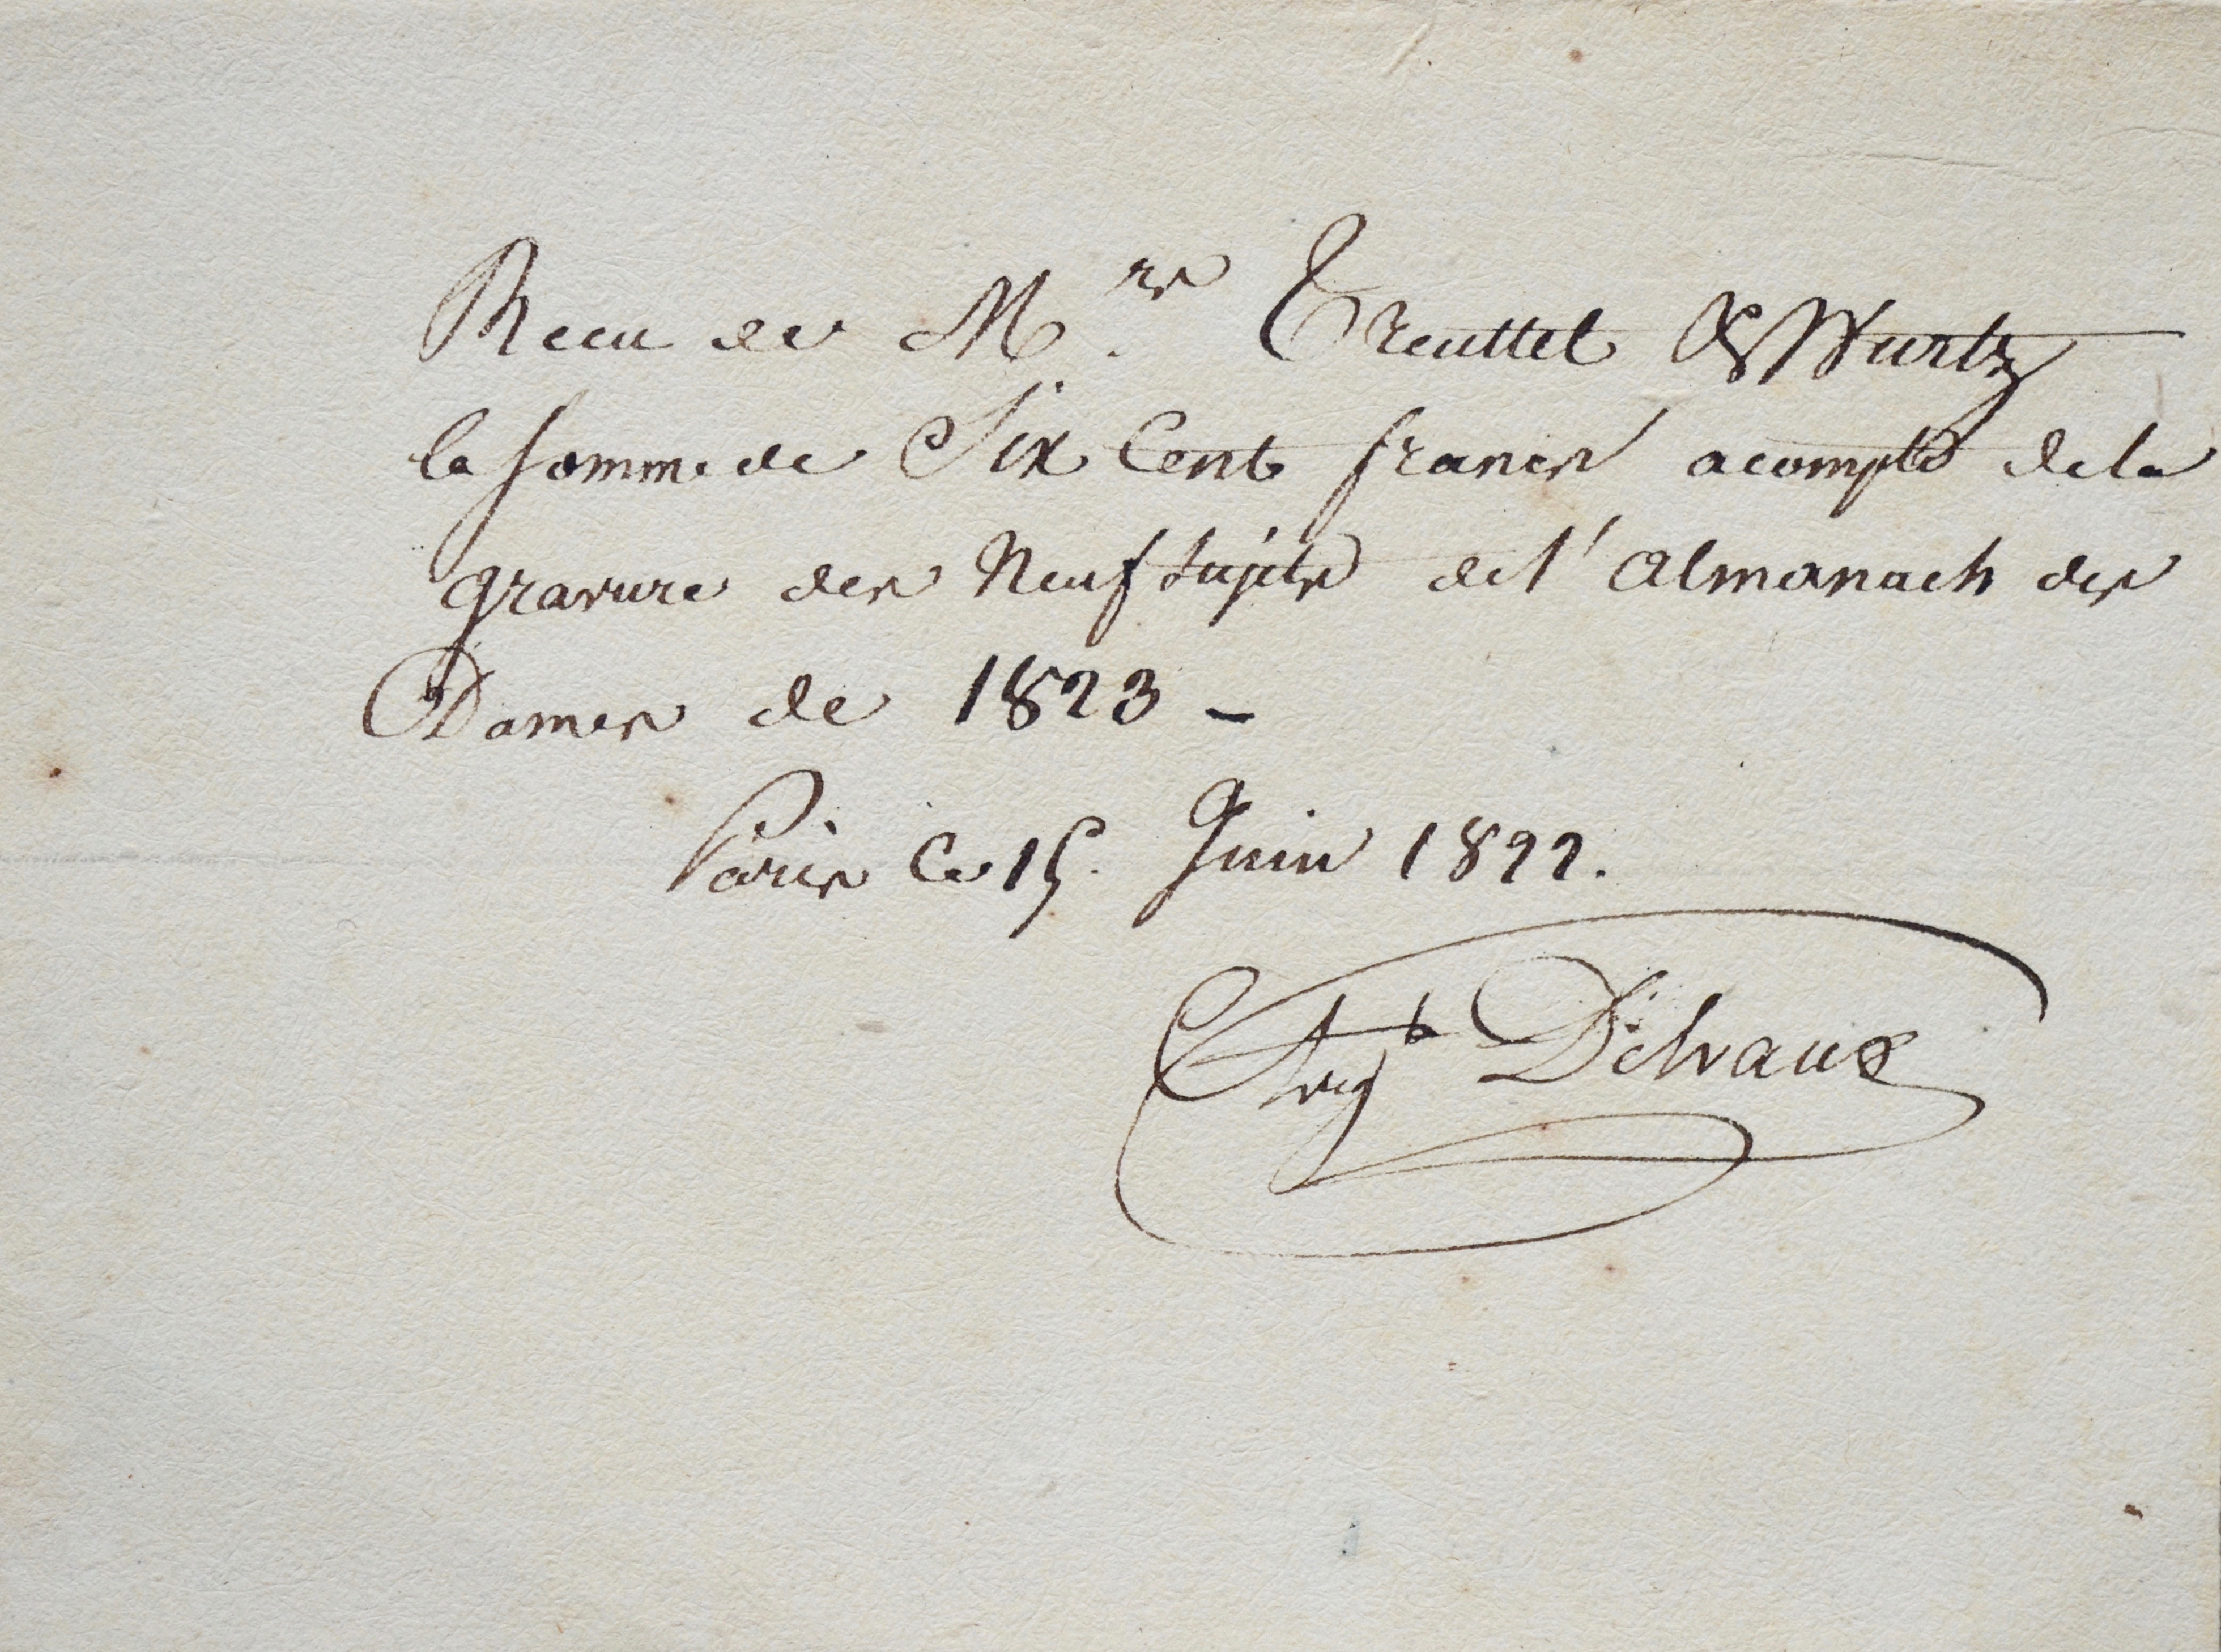 Recu de M.rs Treuttel & Wurtz
la somme de Six Cent francs acompte de la
gravure des Neuf sujets de l'Almanach des
Dames de 1823 -
Paris Ce 15. Juin 1822.
Augte Delvaux